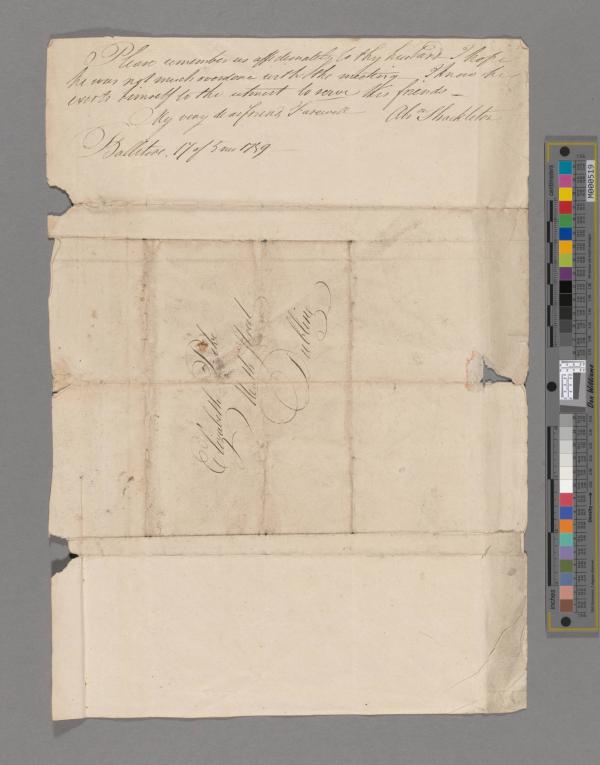 Please remember us affectionately to thy husband I hope
he was not much overdone with the meeting I know he
exerts himself to the utmost to serve his friends —
My very dear friend Farewell Abm Shackleton
Ballitore, 17 of 5 mo 1789
Elizabeth Pike
Meath Street
Dublin
centimeters
M000519
Don Williams
Density
inches